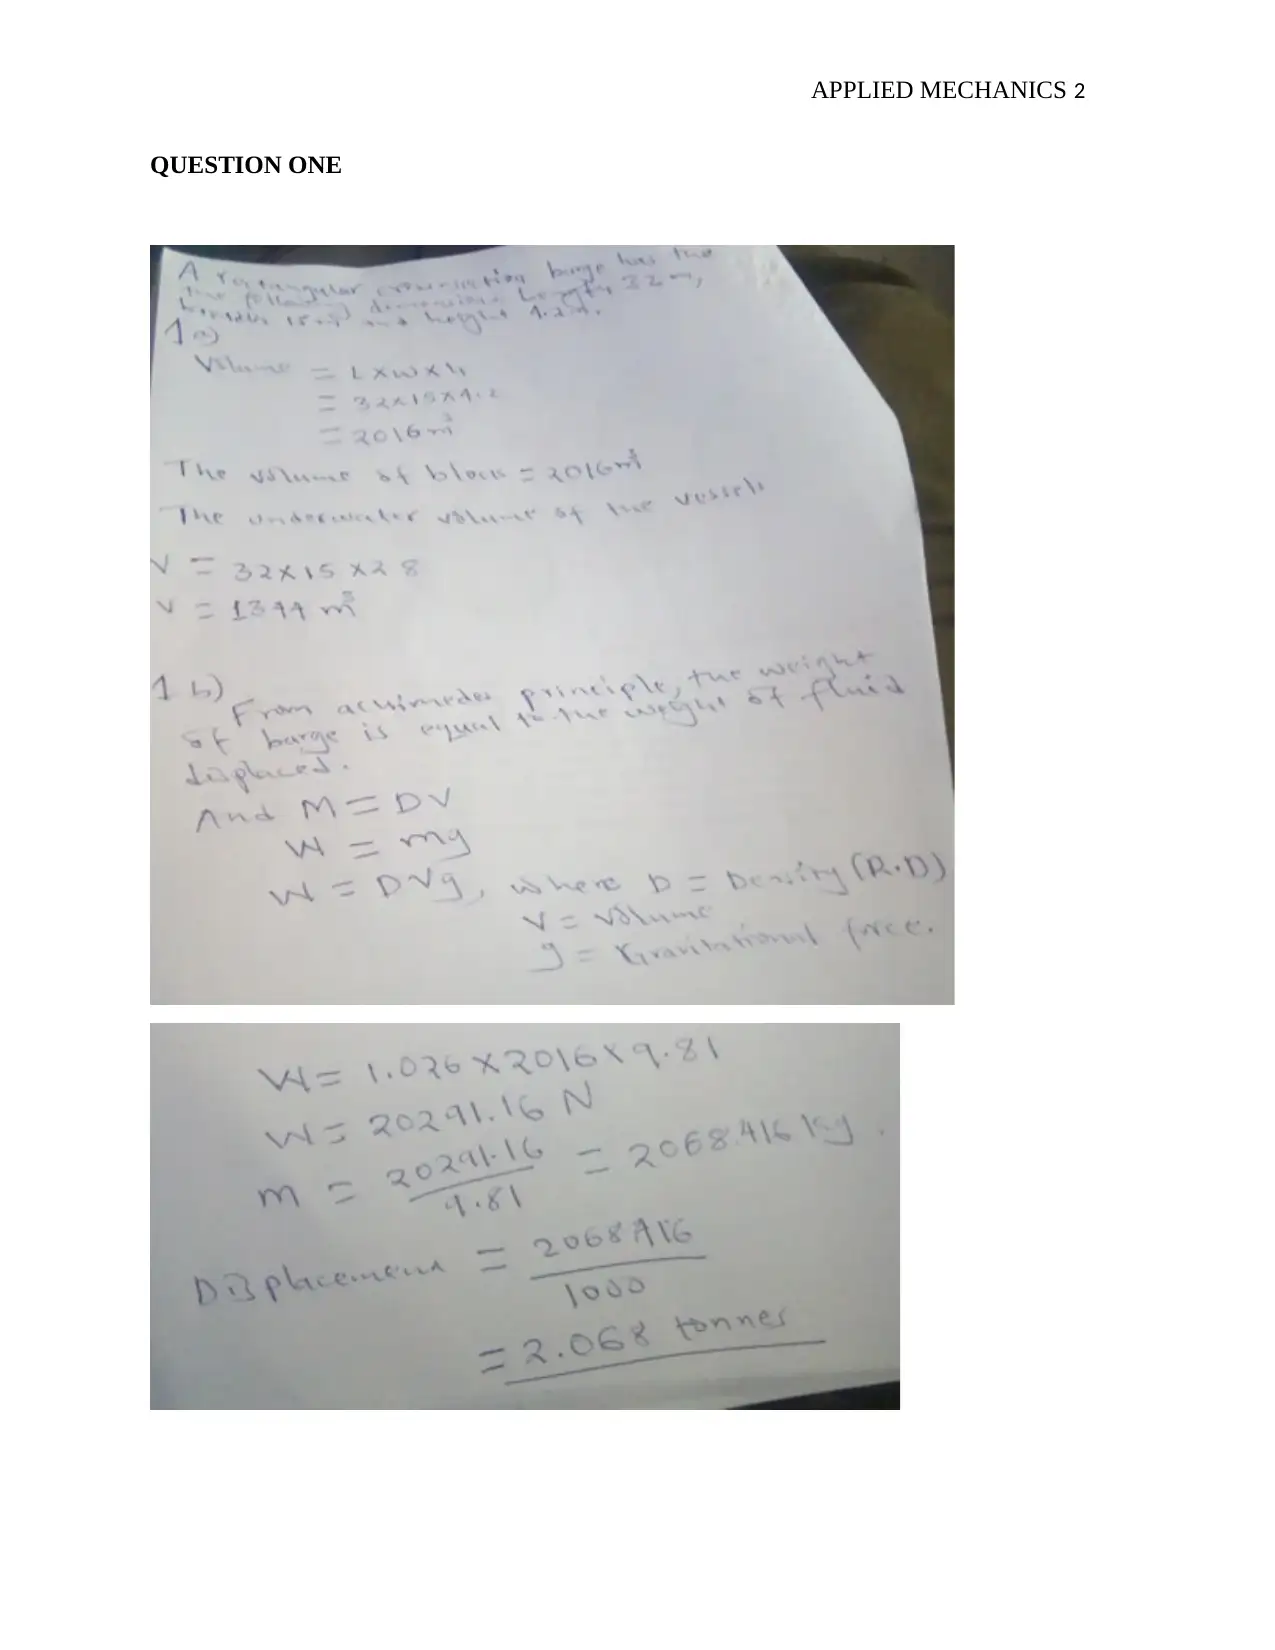 APPLIED MECHANICS 2
QUESTION ONE
A rectangular cross-section barge has the
the following dimensions Length 32m,
breadth 15m and height 4.2m.
1a)
Volume = L x w x h
= 32x15x4.2
= 2016m³
The volume of block = 2016m³
The underwater volume of the vessel
V = 32x15x2.8
V = 1344 m³
1b)
From acuimedes principle, the weight
of barge is equal to the weight of fluid
displaced.
And M = DV
W = mg
W = DVg, where D = Density (R.D)
V = Volume
g = Gravitational force.
W = 1.026 x 2016 x 9.81
W = 20291.16 N
m = 20291.16 / 9.81 = 2068.416 kg.
Displacement = 2068.416 / 1000
= 2.068 tonnes